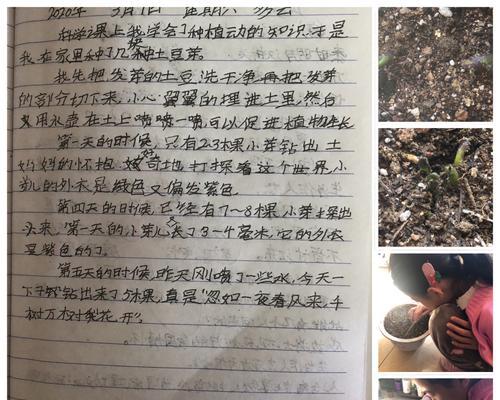 2020年 3月1日 星期六 多云
科学课上我学会了种植动的知识于是
我在家里种了几棵种土豆芽。
我先把发芽的土豆洗干净再把发芽
的部分切下来,小心翼翼的埋进土里,然后
又用水壶在土上喷喷一喷,可以促进植物生长
第一天的时候,只有2-3棵小芽钻出土
妈妈的怀抱,好奇地打探着这个世界,小
芽儿的外衣是绿色又偏发紫色.
第四天的时候,已经有7~8棵,小芽才探出
头来,第一天的小芽儿长了3-4毫米,它的外衣
是紫色的了。
第五天的时候,昨天刚喷了一些水,今天一
下子就钻出来了5棵,真是"忽如一夜春风来,千
树万树梨花开"。